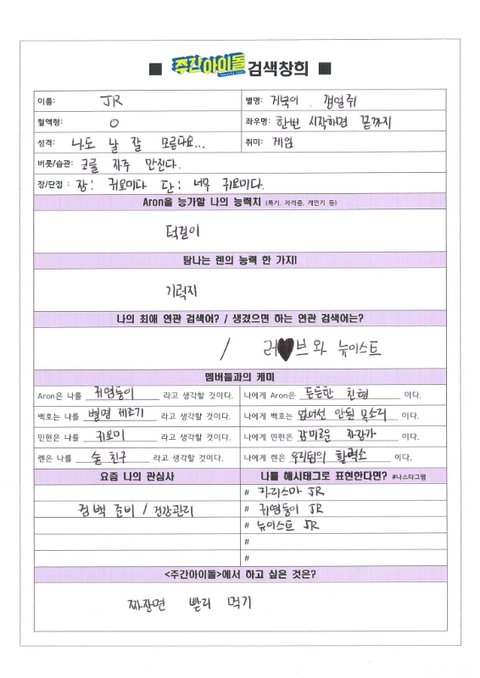 ■ 주간아이돌 검색창희 ■
이름: JR 별명: 거북이 . 갱얼쥐
혈액형: O 좌우명: 한번 시작하면 끝까지
성격: 나도 날 잘 모르나요... 취미: 게임
버릇/습관: 코를 자주 만진다.
장/단점 : 장: 귀요미다 단: 너무 귀요미다.
Aron을 능가할 나의 능력치 (특기, 자격증, 개인기 등)
턱걸이
탐나는 렌의 능력 한 가지!
기럭지
나의 최애 연관 검색어? / 생겼으면 하는 연관 검색어는?
/ 러♥브 와 뉴이스트
멤버들과의 케미
Aron은 나를 귀염둥이 라고 생각할 것이다. 나에게 Aron은 든든한 친형 이다.
백호는 나를 별명 제조기 라고 생각할 것이다. 나에게 백호는 없어선 안될 목소리 이다.
민현은 나를 귀요미 라고 생각할 것이다. 나에게 민현은 감미로운 자장가 이다.
렌은 나를 술 친구 라고 생각할 것이다. 나에게 렌은 우리팀의 활력소 이다.
요즘 나의 관심사 나를 해시태그로 표현한다면? #나스타그램
컴백 준비 / 건강관리
# 카리스마 JR
# 귀염둥이 JR
# 뉴이스트 JR
#
#
<주간아이돌>에서 하고 싶은 것은?
짜장면 빨리 먹기